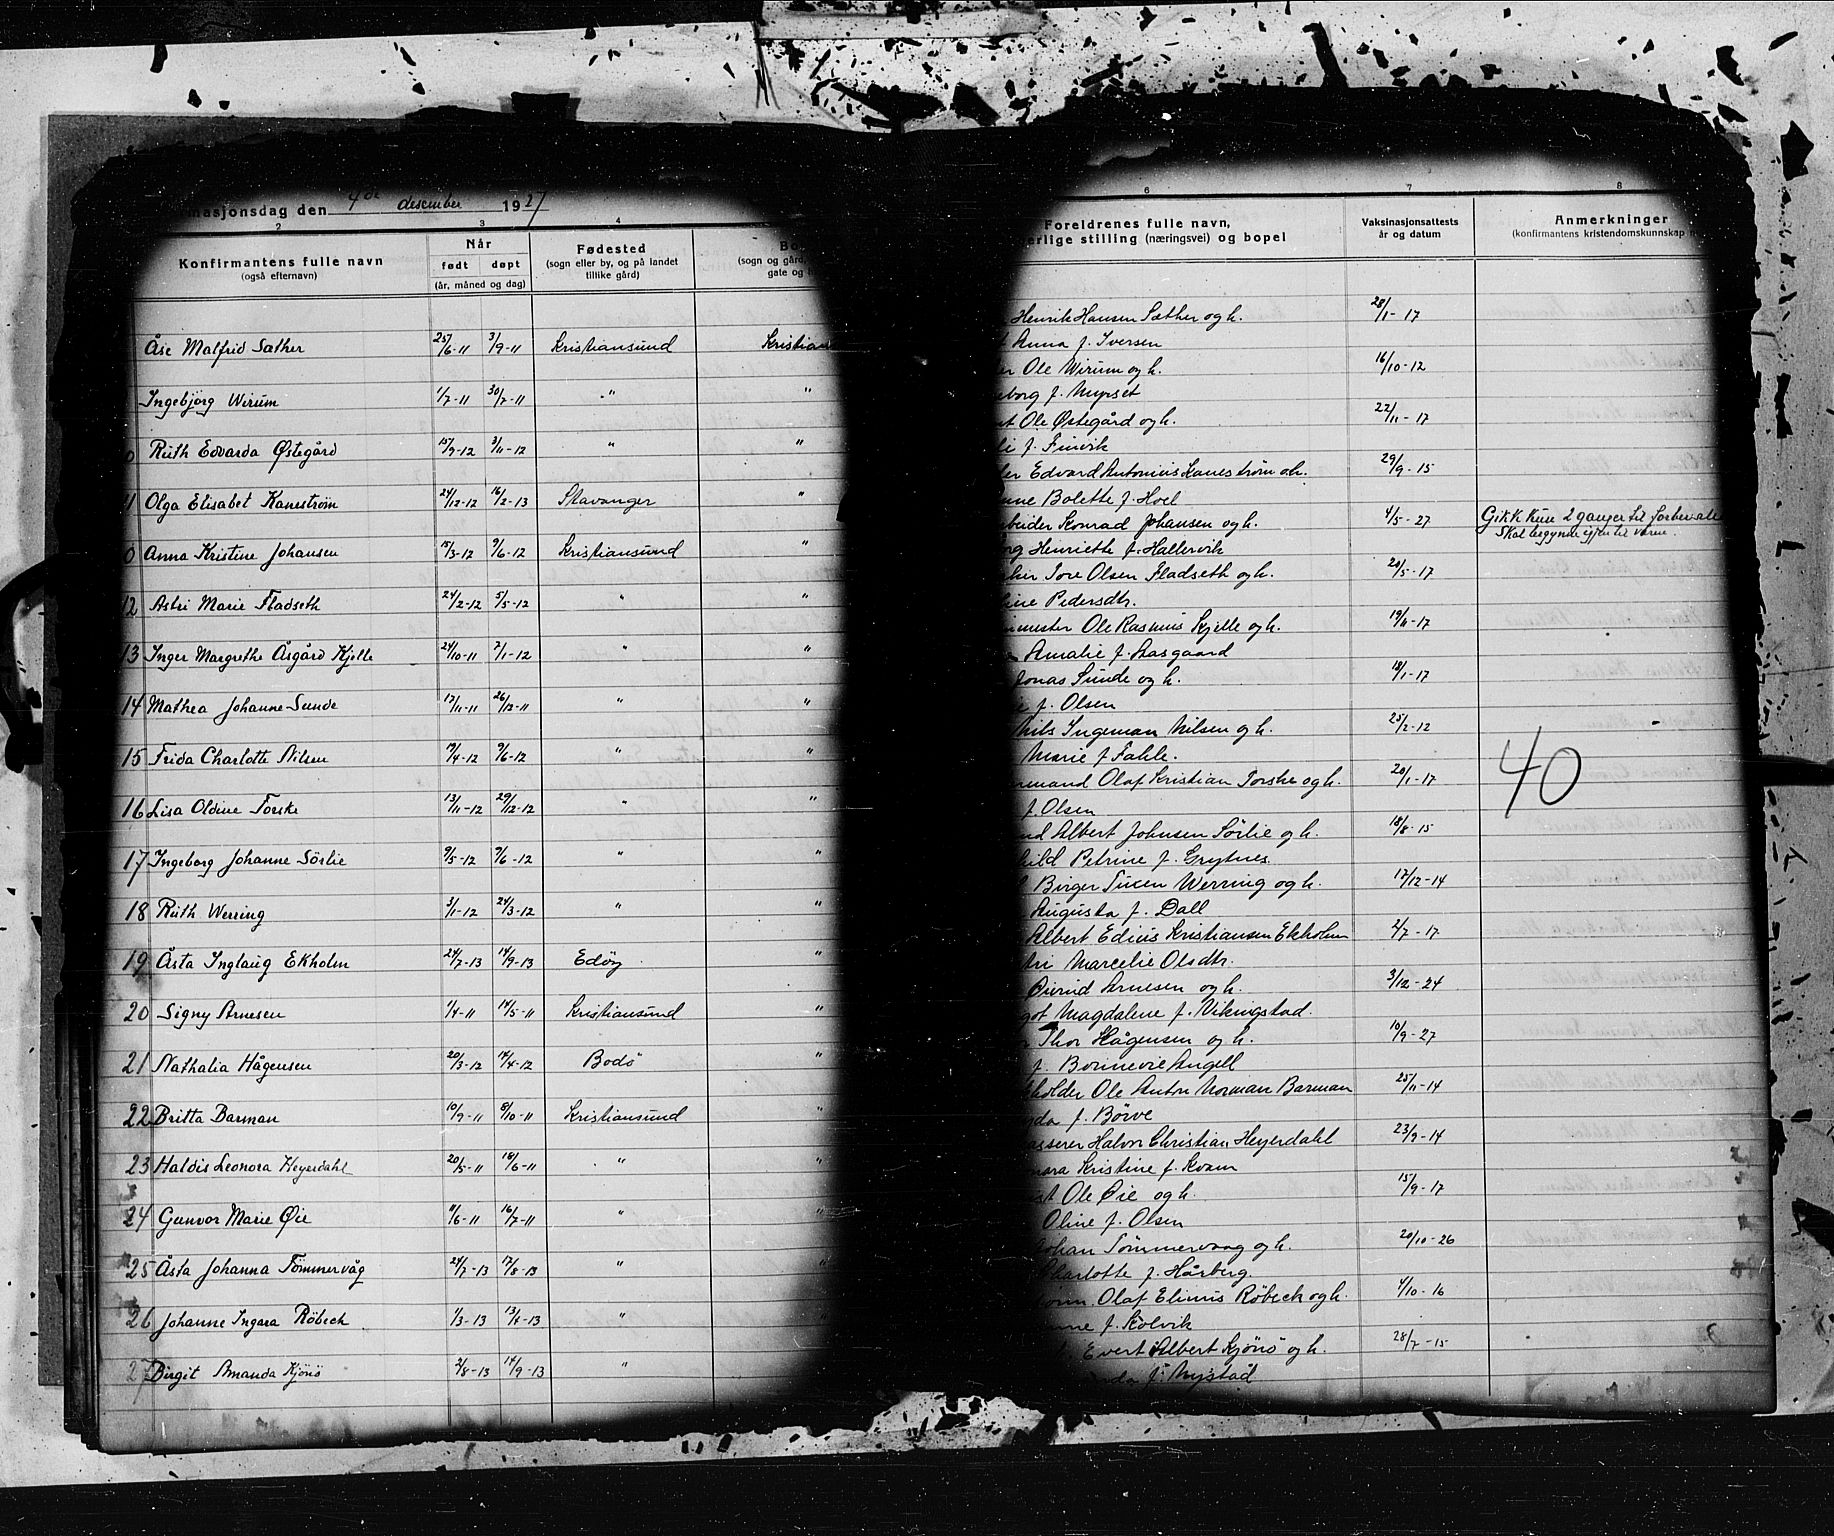 masjonsdag den 4de desember 1927
2 3 4
Konfirmantens fulle navn
(også efternavn)
Når
født døpt
(år, måned og dag)
Fødested
(sogn eller by, og på landet
tillike gård)
Bo
(sogn og gård,
gate og
Åse Malfrid Sæther 25/6-11 3/9-11 Kristiansund Kristian
Ingebjörg Wirum 1/7-11 30/7-11 " "
Ruth Edvarda Østegård 15/9-12 3/11-12 " "
11 Olga Elisabet Kanestrøm 24/12-12 16/2-13 Stavanger "
Anna Kristine Johansen 15/3-12 9/6-12 Kristiansund "
12 Astri Marie Fladseth 24/2-12 5/5-12 " "
13 Inger Margrethe Åsgård Kjelle 24/10-11 7/1-12 " "
14 Mathea Johanne Sunde 17/11-11 26/12-11 " "
15 Frida Charlotte Nilsen 19/4-12 9/6-12 " "
16 Lisa Oldine Torske 13/11-12 29/12-12 " "
17 Ingeborg Johanne Sörlie 9/5-12 9/6-12 " "
18 Ruth Werring 3/1-12 24/3-12 " "
19 Åsta Inglaug Ekholm 24/7-13 14/9-13 Edöy "
20 Signy Arnesen 1/4-11 14/5-11 Kristiansund "
21 Nathalia Hågensen 20/3-12 14/4-12 Bodö "
22 Britta Barman 10/9-11 8/10-11 Kristiansund "
23 Haldis Leonora Heyerdahl 20/5-11 18/6-11 " "
24 Gunvor Marie Øie 9/6-11 16/7-11 " "
25 Åsta Johanna Tömmervåg 24/7-13 17/8-13 " "
26 Johanne Ingara Röbeck 1/3-13 13/4-13 "
27 Birgit Amanda Kjönö 2/8-13 14/9-13 "
6 7 8
Foreldrenes fulle navn,
erlige stilling (næringsvei) og bopel
Vaksinasjonsattests
år og datum
Anmerkninger
(konfirmantens kristendomskunnskap
Henrik Hansen Sæther og h. 28/1-17
Anna f. Iversen
Ole Wirum og h. 16/10-12
borg f. Nupset
Ole Østegård og h. 22/11-17
f. Finvik
Edvard Antonius Kanestrøm o.h. 29/9-15
Bolette f. Hoel
arbeider Konrad Johansen og h. 4/5-27 Gikk kun 2 ganger til forberedel
Skal begynde igjen til våren.
Henriette f. Hallervik
Tore Olsen Fladseth og h. 20/5-17
Pedersdtr.
mester Ole Rasmus Kjelle og h. 19/11-17
Amalie f. Aasgaard
Jonas Sunde og h. 18/1-17
f. Olsen
Nils Ingeman Nilsen og h. 25/2-12
Marie f Fahle.
mand Olaf Kristian Torske og h. 20/1-17
40
f. Olsen
Albert Johnsen Sörlie og h. 18/8-15
hild Petrine f. Grytnes
Birger Tucen Werring og h. 17/12-14
Augusta f. Dall
Albert Edius Kristiansen Ekholm 2/7-17
Marcelie Olsdtr.
Öivind Arnesen og h. 3/12-24
got Magdalene f. Vikingstad.
Thor Hågensen og h. 10/9-27
f. Bonnevie Angell
holder Ole Anton Norman Barman 25/11-14
f. Börve
kasserer Halvor Christian Heyerdahl 23/9-14
nora Kristine f. Kvam
Ole Øie og h. 15/9-17
Oline f. Olsen
Johan Tömmervaag og h. 20/10-26
Charlotte f. Hårberg.
Olaf Elinus Röbeck og h. 4/10-16
f. Kolvik
Evert Albert Kjönö og h. 28/7-15
f. Nystad